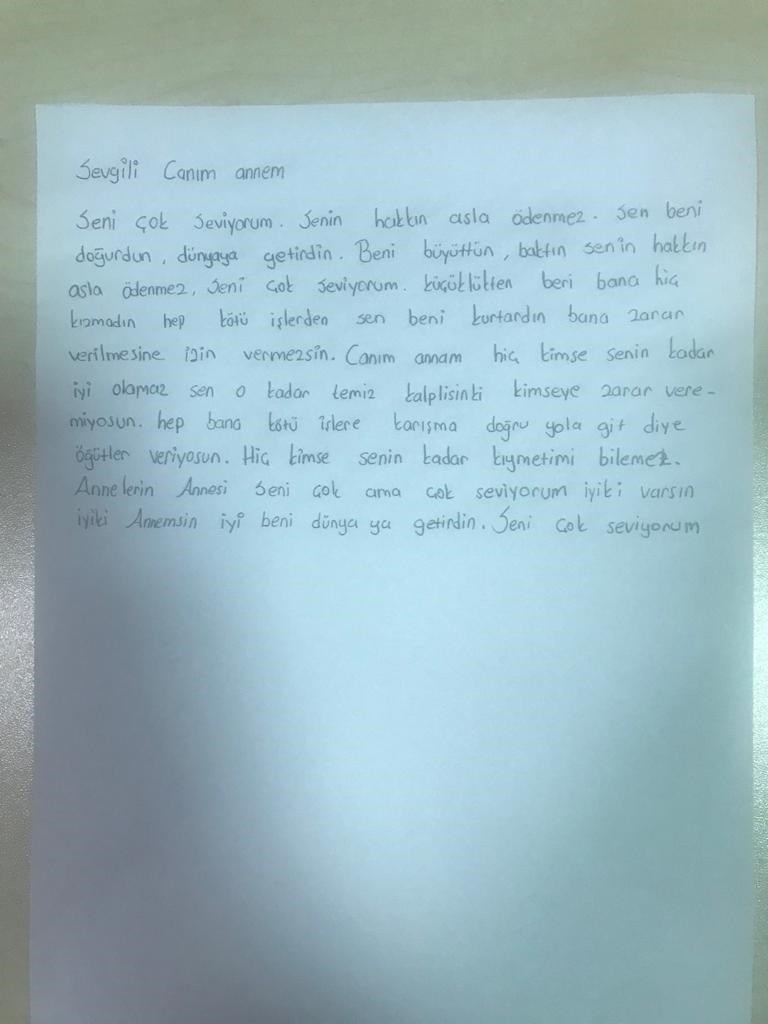 Sevgili Canım annem
Seni çok seviyorum. Senin hakkın asla ödenmez. Sen beni
doğurdun, dünyaya getirdin. Beni büyüttün, baktın senin hakkın
asla ödenmez, Seni çok seviyorum. küçüklükten beri bana hiç
kızmadın hep kötü işlerden sen beni kurtardın bana zarar
verilmesine izin vermezsin. Canım annam hiç kimse senin kadar
iyi olamaz sen o kadar temiz kalplisinki kimseye zarar vere-
miyosun. hep bana kötü işlere karışma doğru yola git diye
öğütler veriyosun. Hiç kimse senin kadar kıymetimi bilemez.
Annelerin Annesi Seni çok ama çok seviyorum iyiki varsın
iyiki Annemsin iyi beni dünya ya getirdin. Seni çok seviyorum